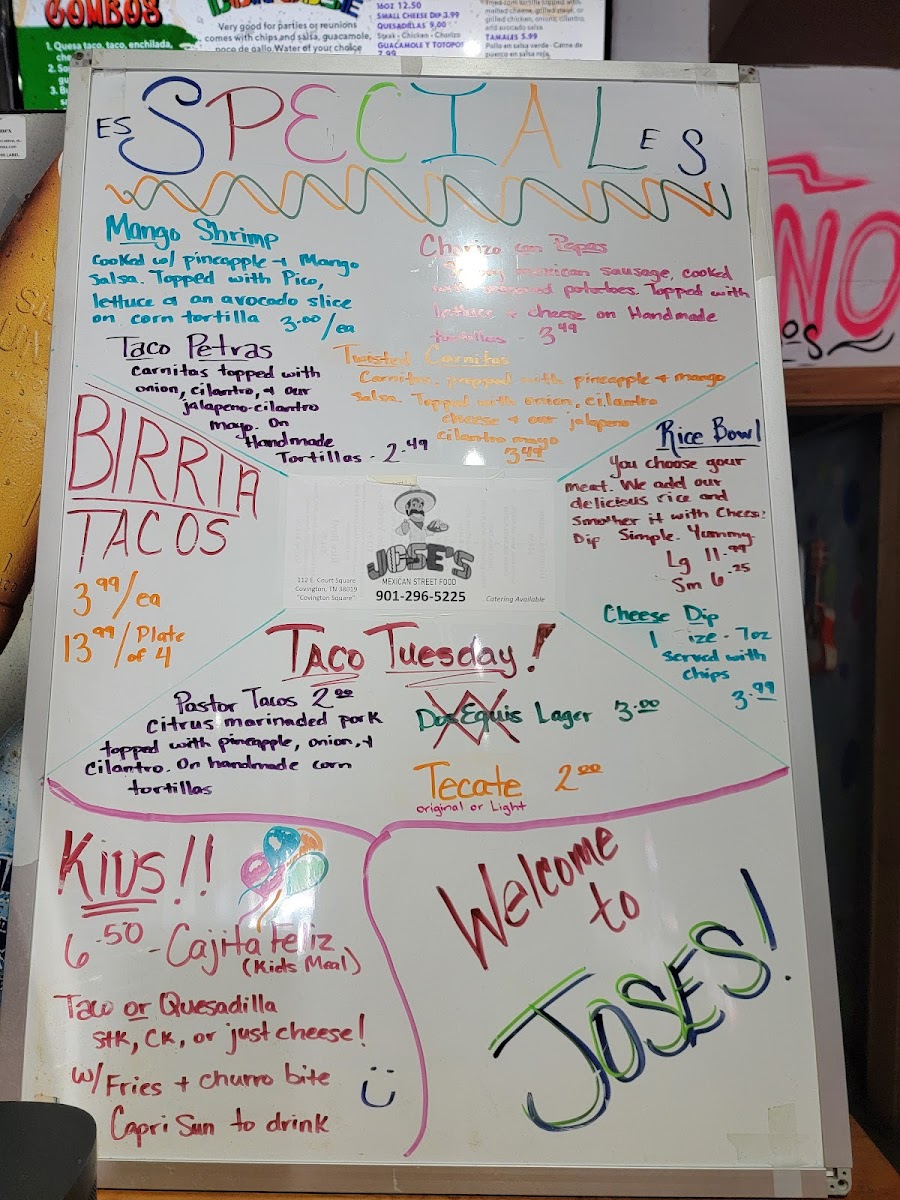 COMBOS
Very good for parties or reunions
comes with chips and salsa, guacamole,
pece de gallo. Water of your choice
1. Quesa taco, taco, enchilada,
16oz 12.50
SMALL CHEESE DIP 3.99
QUESADILLAS 9.00
Steak - Chicken - Chorizo
GUACAMOLE Y TOTOPOS
7.99
grilled chicken, onions, cilantro,
and avocado salsa.
TAMALES 5.99
Pollo en salsa verde - Carne de
puerco en salsa roja.
ESPECIALES
Mango Shrimp
Cooked w/ pineapple + Mango
Salsa. Topped with Pico,
lettuce & an avocado slice
on corn tortilla 3.00/ea
Chorizo con Papas
mexican sausage, cooked
potatoes. Topped with
lettuce + cheese on Handmade
tortillas - 3.49
Taco Petras
Carnitas topped with
onion, cilantro, & our
jalapeno-cilantro
mayo. On
Handmade
Tortillas - 2.49
Twisted Carnitas
Carnitas prepped with pineapple + mango
salsa. Topped with onion, cilantro
cheese & our jalapeno
cilantro mayo
3.49
BIRRIA
TACOS
3.99/ea
13.99/Plate
of 4
Rice Bowl
You choose your
meat. We add our
delicious rice and
Smother it with Cheese
Dip Simple. Yummy.
Lg 11.99
Sm 6.25
JOSE'S
MEXICAN STREET FOOD
112 E. Court Square
Covington, TN 38019
"Covington Square"
901-296-5225
Catering Available
Cheese Dip
1 ize - 7oz
served with
chips
3.99
Taco Tuesday!
Pastor Tacos 2.00
Citrus marinaded pork
topped with pineapple, onion, +
Cilantro. On handmade corn
tortillas
Dos Equis Lager 3.00
Tecate 2.00
original or Light
KIDS!!
6.50 - Cajita Feliz
(Kids Meal)
Taco or Quesadilla
Stk, CK, or just cheese!
w/ Fries + churro bite
Capri Sun to drink
Welcome
to
JOSES!
NO